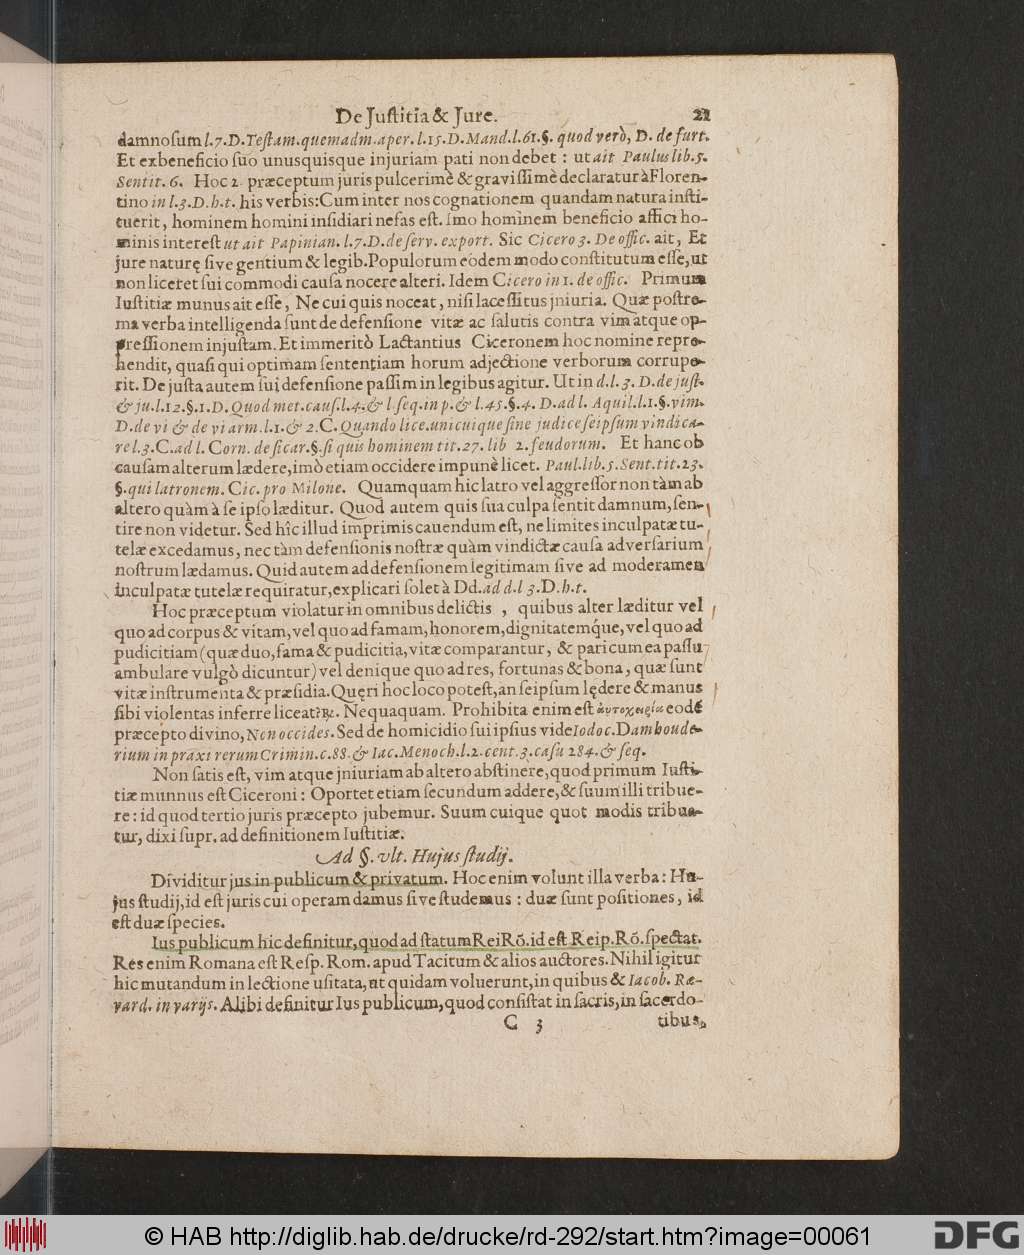 De Juſtitia & Jure. 21
damnoſum l.7.D.Teſtam.quemadm.aper.l.15.D.Mand.l.61.§. quod verò, D. de furt.
Et exbeneficio ſuo unusquisque injuriam pati non debet : ut ait Paulus lib.5.
Sentit. 6. Hoc 2 præceptum juris pulcerimè & graviſſimè declaratur à Floren-
tino in l.3.D.h.t. his verbis: Cum inter nos cognationem quandam natura inſti-
tuerit, hominem homini inſidiari nefas eſt. Imo hominem beneficio affici ho-
minis intereſt ut ait Papinian. l.7.D.de ſerv. export. Sic Cicero 3. De offic. ait, Et
jure naturę ſive gentium & legib. Populorum eodem modo conſtitutum eſſe, ut
non liceret ſui commodi cauſa nocere alteri. Idem Cicero in 1. de offic. Primum
Iuſtitiæ munus ait eſſe, Ne cui quis noceat, niſi laceſſitus jniuria. Quæ poſtre-
ma verba intelligenda ſunt de defenſione vitæ ac ſalutis contra vim atque op-
preſſionem injuſtam. Et immeritò Lactantius Ciceronem hoc nomine repre-
hendit, quaſi qui optimam ſententiam horum adjectione verborum corrupe-
rit. De juſta autem ſui defenſione paſſim in legibus agitur. Ut in d.l. 3. D.de juſt.
& ju.l.12.§.1.D. Quod met.cauſ.l.4.& l.ſeq.in p.& l.45.§.4. D.ad l. Aquil.l.1.§.vim.
D.de vi & de vi arm.l.1.& 2.C. Quando lice.unicuique ſine judice ſeipſum vindica-
re l.3.C.ad l. Corn. de ſicar.§.ſi quis hominem tit.27. lib 2. feudorum. Et hanc ob
cauſam alterum lædere, imò etiam occidere impunè licet. Paul.lib.5.Sent.tit.23.
§.qui latronem. Cic. pro Milone. Quamquam hic latro vel aggreſſor non tàm ab
altero quàm à ſe ipſo læditur. Quod autem quis ſua culpa ſentit damnum, ſen-
tire non videtur. Sed hîc illud imprimis cauendum eſt, ne limites inculpatæ tu-
telæ excedamus, nec tàm defenſionis noſtræ quàm vindictæ cauſa adverſarium
noſtrum lædamus. Quid autem ad defenſionem legitimam ſive ad moderamen
inculpatæ tutelæ requiratur, explicari ſolet à Dd. ad d.l 3.D.h.t.
Hoc præceptum violatur in omnibus delictis , quibus alter læditur vel
quo ad corpus & vitam, vel quo ad famam, honorem, dignitatemq́ue, vel quo ad
pudicitiam (quæ duo, fama & pudicitia, vitæ comparantur, & pari cum ea paſſu
ambulare vulgò dicuntur) vel denique quo ad res, fortunas & bona, quæ ſunt
vitæ inſtrumenta & præſidia. Quęri hoc loco poteſt, an ſeipſum lędere & manus
ſibi violentas inferre liceat? ℞. Nequaquam. Prohibita enim eſt αὐτοχειρία eodē
præcepto divino, Non occides. Sed de homicidio ſui ipſius vide Iodoc. Damhoude-
rium in praxi rerum Crimin.c.88.& Iac. Menoch.l.2.cent.3.caſu 284.& ſeq.
Non ſatis eſt, vim atque jniuriam ab altero abſtinere, quod primum Iuſti-
tiæ munnus eſt Ciceroni : Oportet etiam ſecundum addere, & ſuum illi tribue-
re : id quod tertio juris præcepto jubemur. Suum cuique quot modis tribua-
tur, dixi ſupr. ad definitionem Iuſtitiæ.
Ad §. vlt. Hujus ſtudij.
Dividitur jus in publicum & privatum. Hoc enim volunt illa verba : Hu-
jus ſtudij, id eſt juris cui operam damus ſive ſtudemus : duæ ſunt poſitiones, id
eſt duæ ſpecies.
Ius publicum hic definitur, quod ad ſtatum Rei Rō. id eſt Reip. Rō. ſpectat.
Res enim Romana eſt Reſp. Rom. apud Tacitum & alios auctores. Nihil igitur
hic mutandum in lectione uſitata, ut quidam voluerunt, in quibus & Iacob. Ræ-
vard. in varijs. Alibi definitur Ius publicum, quod conſiſtat in ſacris, in ſacerdo-
C 3 tibus,
© HAB http://diglib.hab.de/drucke/rd-292/start.htm?image=00061 DFG